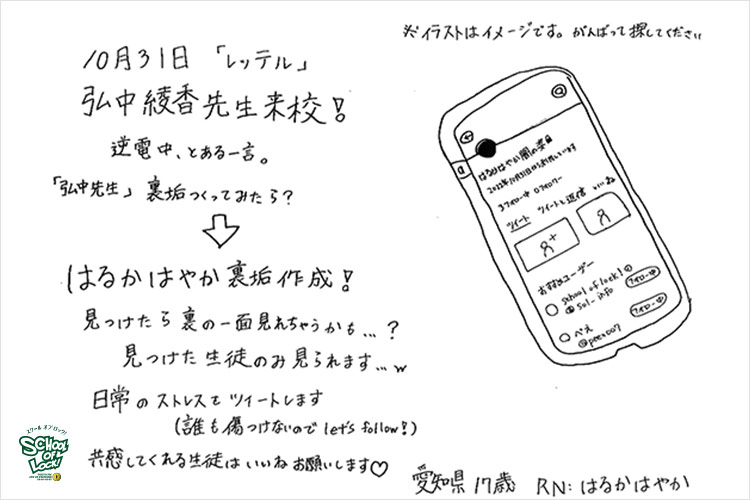 ※イラストはイメージです。がんばって探してください
10月31日 「レッテル」
弘中綾香先生来校!
逆電中、とある一言。
「弘中先生」裏垢つくってみたら?
はるかはやか裏垢作成!
見つけたら裏の一面見れちゃうかも...?
見つけた生徒のみ見られます...w
日常のストレスをツイートします
(誰も傷つけないので let's follow!)
共感してくれる生徒は いいね お願いします♡
愛知県 17歳 RN:はるかはやか
はるかはやか 闇の姿
2022年10月31日から利用しています
3フォロー中 0フォロワー
ツイート ツイートと返信 いいね
おすすめユーザー
school of lock!
@sol_info
フォロー中
ぺえ
フォロー中
SCHOOL OF LOCK!
スクール オブ ロック!